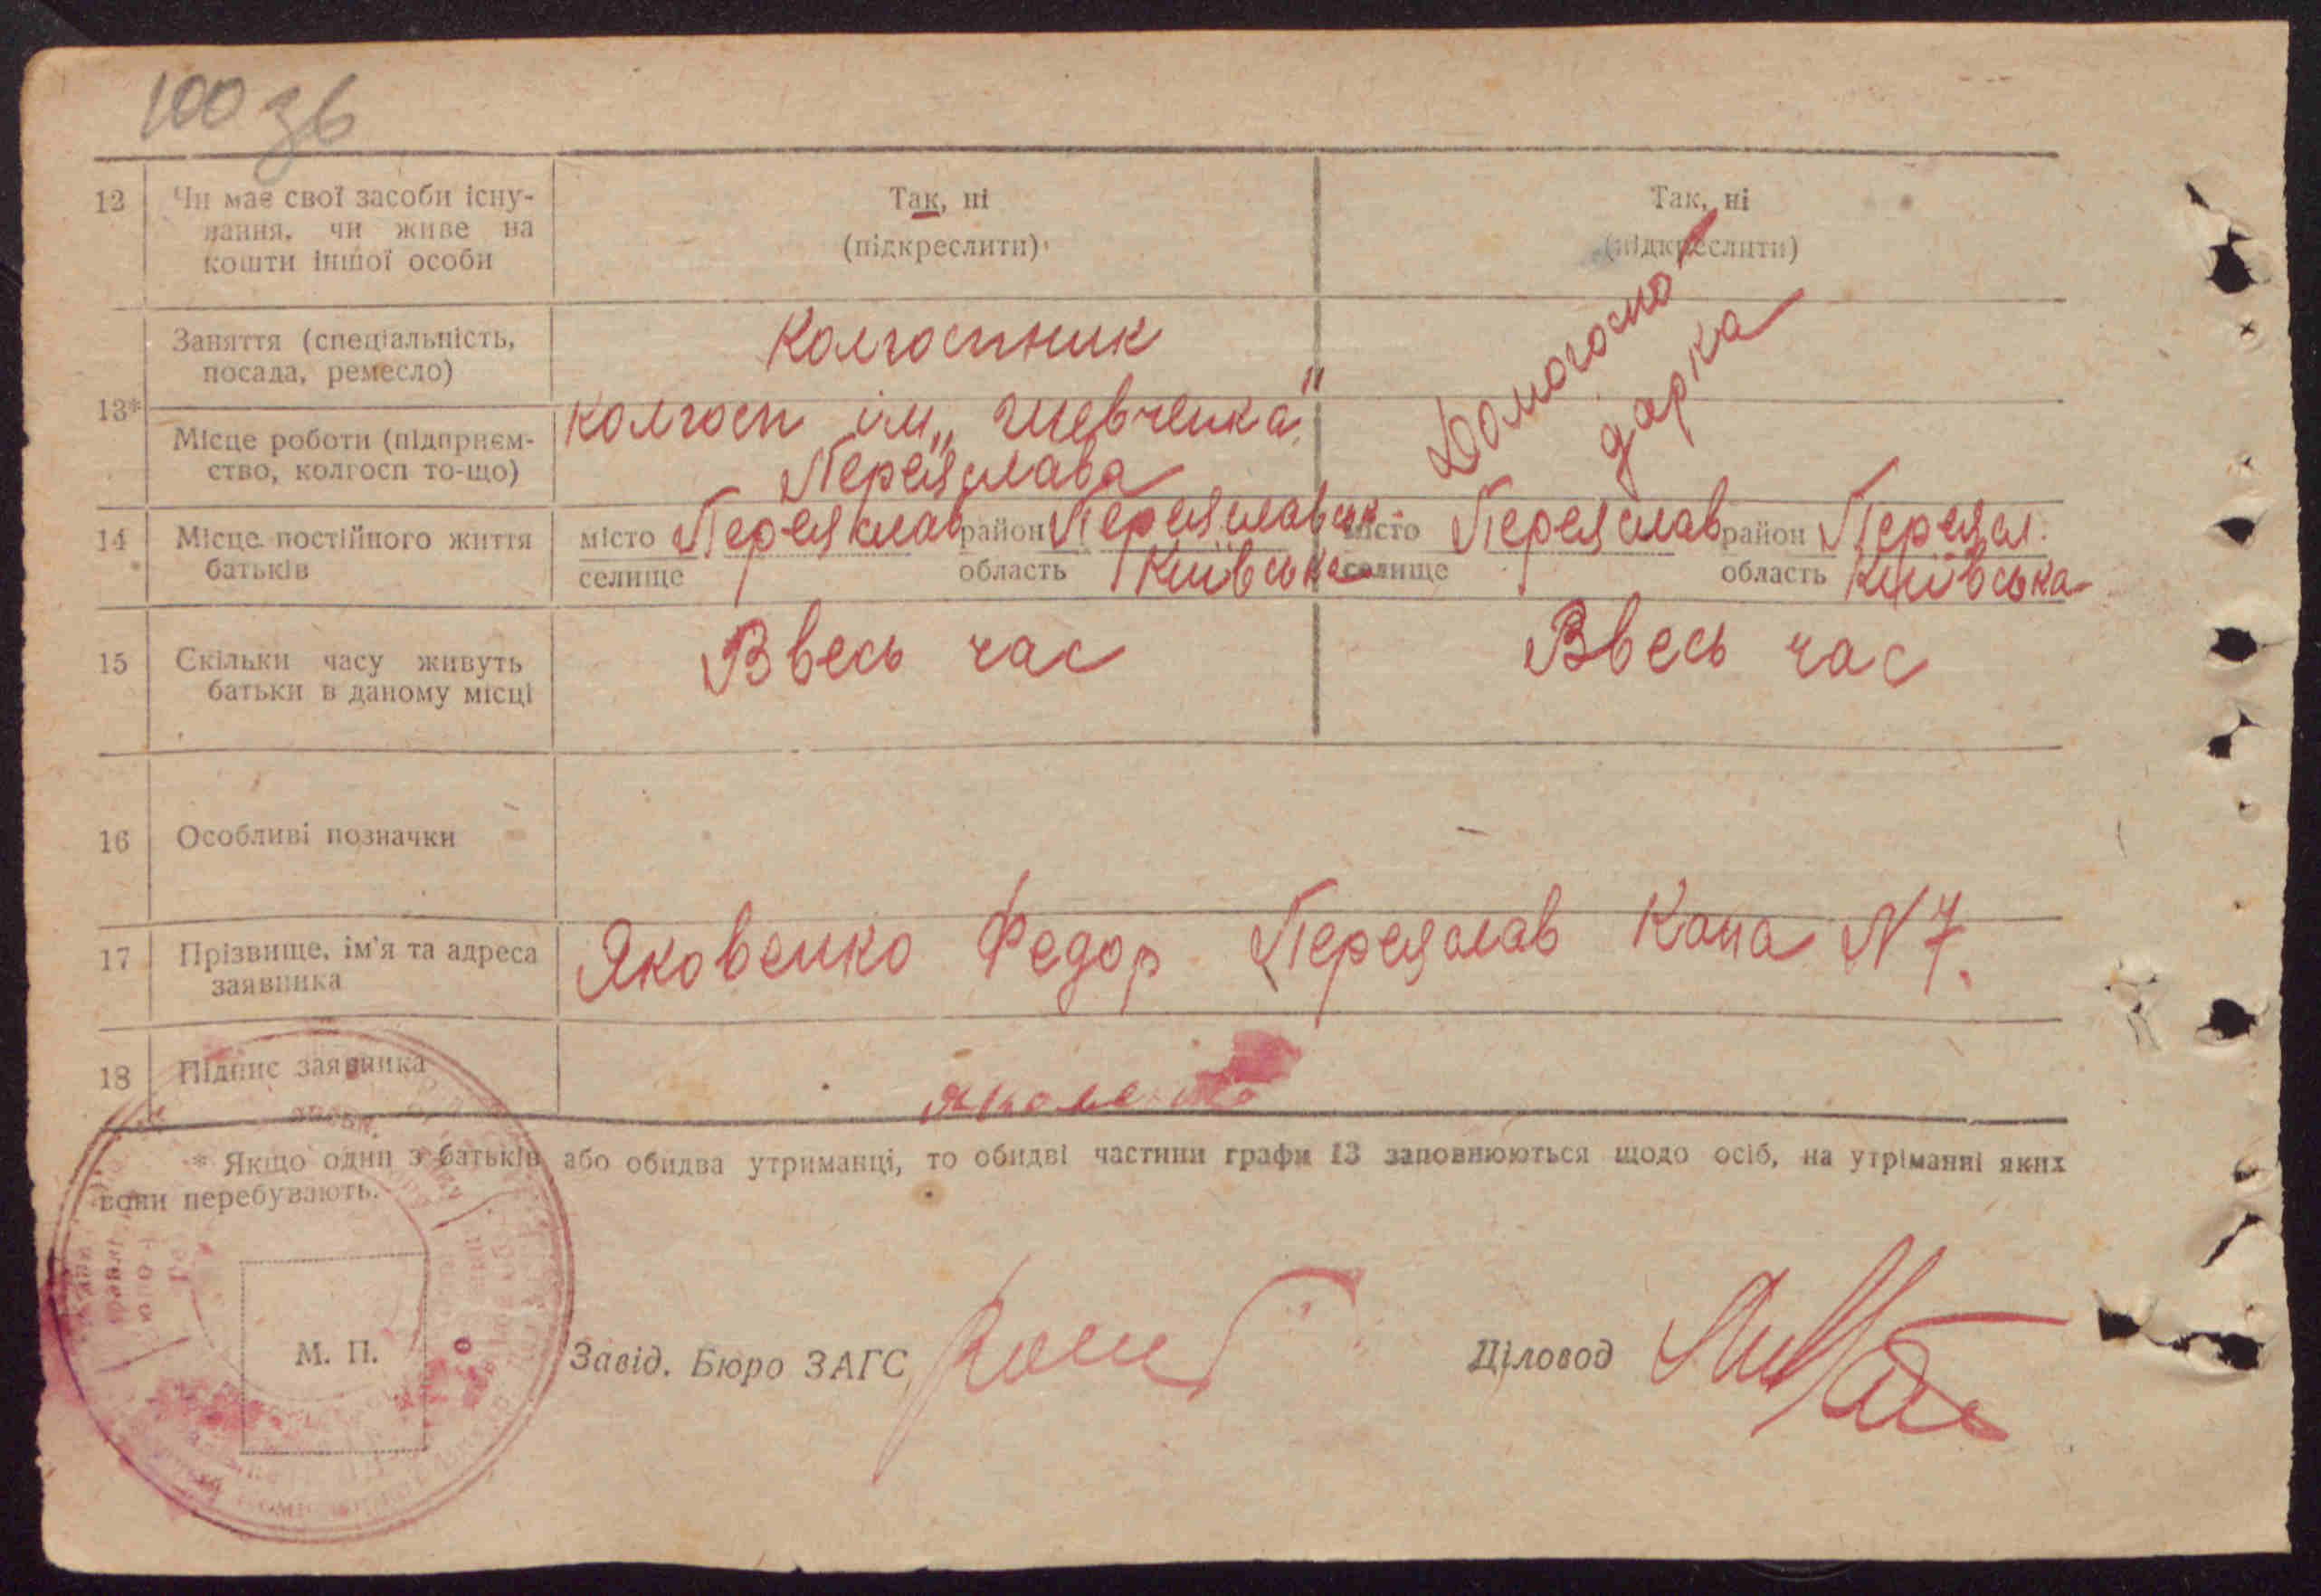 100 зв
12 Чи має свої засоби існу- Так, ні Так, ні
вання, чи живе на (підкреслити) (підкреслити)
кошти іншої особи
Заняття (спеціальність, Колгоспник Домогоспо
посада, ремесло) дарка
13*
Місце роботи (підприєм- колгосп ім „Шевченка"
ство, колгосп то-що) Переяслава
14 Місце постійного життя місто Переяслав район Переяславськ. місто Переяслав район Переясл.
батьків селище область Київська селище область Київська
15 Скільки часу живуть Ввесь час Ввесь час
батьки в даному місці
16 Особливі позначки
17 Прізвище, ім'я та адреса Яковенко Федор Переяслав Кана N 7.
заявника
18 Підпис заявника
* Якщо один з батьків або обидва утриманці, то обидві частини графи 13 заповнюються щодо осіб, на утріманні яких
вони перебувають.
М. П. Завід. Бюро ЗАГС Діловод